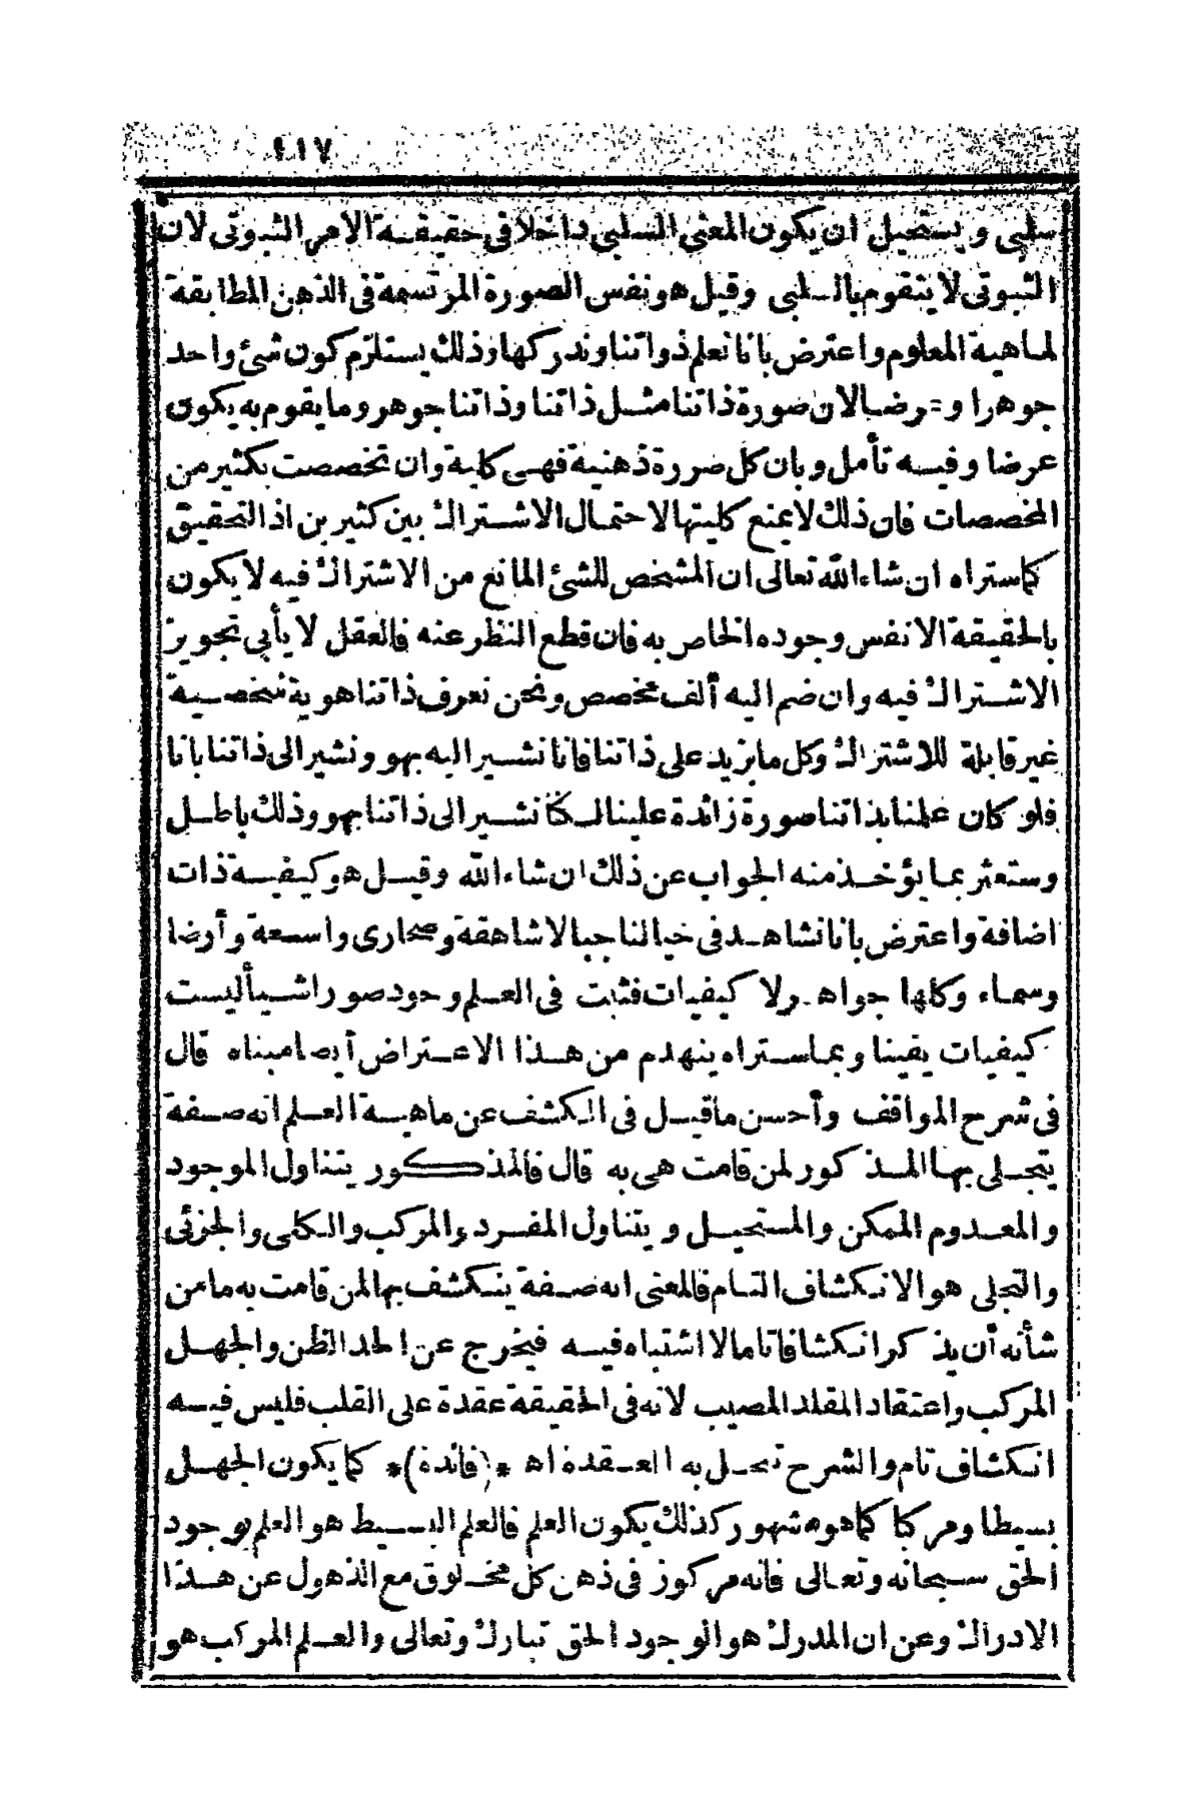 ٤١٧
سلبى ويستحيل ان يكون المعنى السلبى داخلا فى حقيقة الامر الثبوتى لان
الثبوتى لا يتقوم بالسلبى وقيل هو نفس الصورة المرتسمة فى الذهن المطابقة
لماهية المعلوم واعترض بانا نعلم ذواتنا وندركها وذلك يستلزم كون شئ واحد
جوهرا وعرضا لان صورة ذاتنا مثل ذاتنا وذاتنا جوهر وما يقوم به يكون
عرضا وفيه تأمل وبان كل صورة ذهنية فهى كلية وان تخصصت بكثير من
المخصصات فان ذلك لا يمنع كليتها لاحتمال الاشتراك بين كثيرين اذ التحقيق
كما ستراه ان شاء الله تعالى ان المشخص للشئ المانع من الاشتراك فيه لا يكون
بالحقيقة الا نفس وجوده الخاص به فان قطع النظر عنه فالعقل لا يأبى تجويز
الاشتراك فيه وان ضم اليه ألف مخصص ونحن نعرف ذاتنا هوية شخصية
غير قابلة للاشتراك وكل ما نزيد على ذاتنا فانا نشير اليه بهو ونشير الى ذاتنا بانا
فلو كان علمنا بذاتنا صورة زائدة علينا لكنا نشير الى ذاتنا بهو وذلك باطل
وستعثر بما يؤخذ منه الجواب عن ذلك ان شاء الله وقيل هو كيفية ذات
اضافة واعترض بانا نشاهد فى خيالنا جبالا شاهقة وصحارى واسعة وأرضا
وسماء وكلها جواهر ولا كيفيات فثبت فى العلم وجود صور اشيأ ليست
كيفيات يقينا وبما ستراه ينهدم من هذا الاعتراض أيضا مبناه قال
فى شرح المواقف وأحسن ما قيل فى الكشف عن ماهية العلم انه صفة
يتجلى بها المذكور لمن قامت هى به قال فالمذكور يتناول الموجود
والمعدوم الممكن والمستحيل ويتناول المفرد والمركب والكلى والجزئى
والتجلى هو الانكشاف التام فالمعنى انه صفة ينكشف بها لمن قامت به ما من
شأنه أن يذكر انكشافا تاما لا اشتباه فيه فيخرج عن الحد الظن والجهل
المركب واعتقاد المقلد المصيب لانه فى الحقيقة عقدة على القلب فليس فيه
انكشاف تام والشرح تنحل به العقدة اه *(فائدة)* كما يكون الجهل
بسيطا ومركبا كما هو مشهور كذلك يكون العلم فالعلم البسيط هو العلم بوجود
الحق سبحانه وتعالى فانه مركوز فى ذهن كل مخلوق مع الذهول عن هذا
الادراك وعن ان المدرك هو الوجود الحق تبارك وتعالى والعلم المركب هو